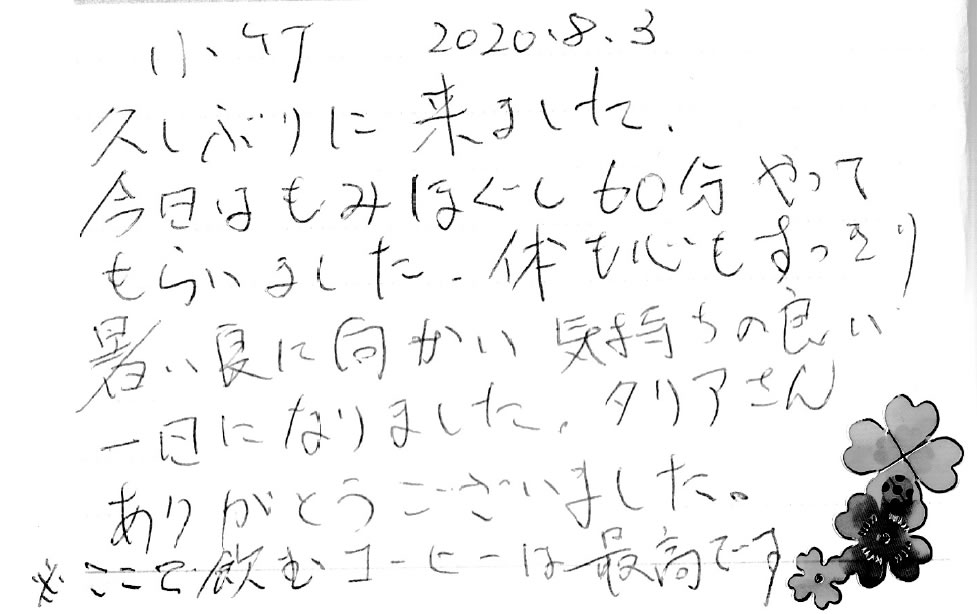 小竹 2020.8.3
久しぶりに来ました.
今日はもみほぐし60分やって
もらいました.体も心もすっきり
暑い夏に向かい気持ちの良い
一日になりました.タリアさん
ありがとうございました。
※ここで飲むコーヒーは最高です